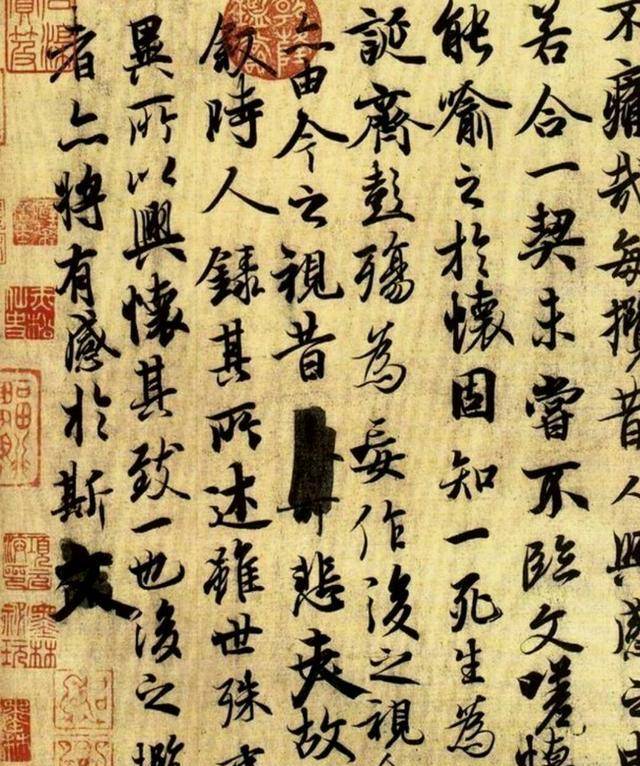 不痛哉每攬昔人興感之由
若合一契未嘗不臨文嗟悼
能喻之於懷固知一死生為
誕齊彭殤為妄作後之視今
亦由今之視昔悲夫故
叙時人錄其所述雖世殊事
異所以興懷其致一也後之攬
者亦將有感於斯文